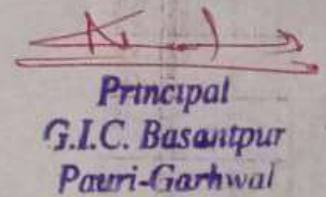 Principal
G.I.C. Basantpur
Pauri-Garhwal